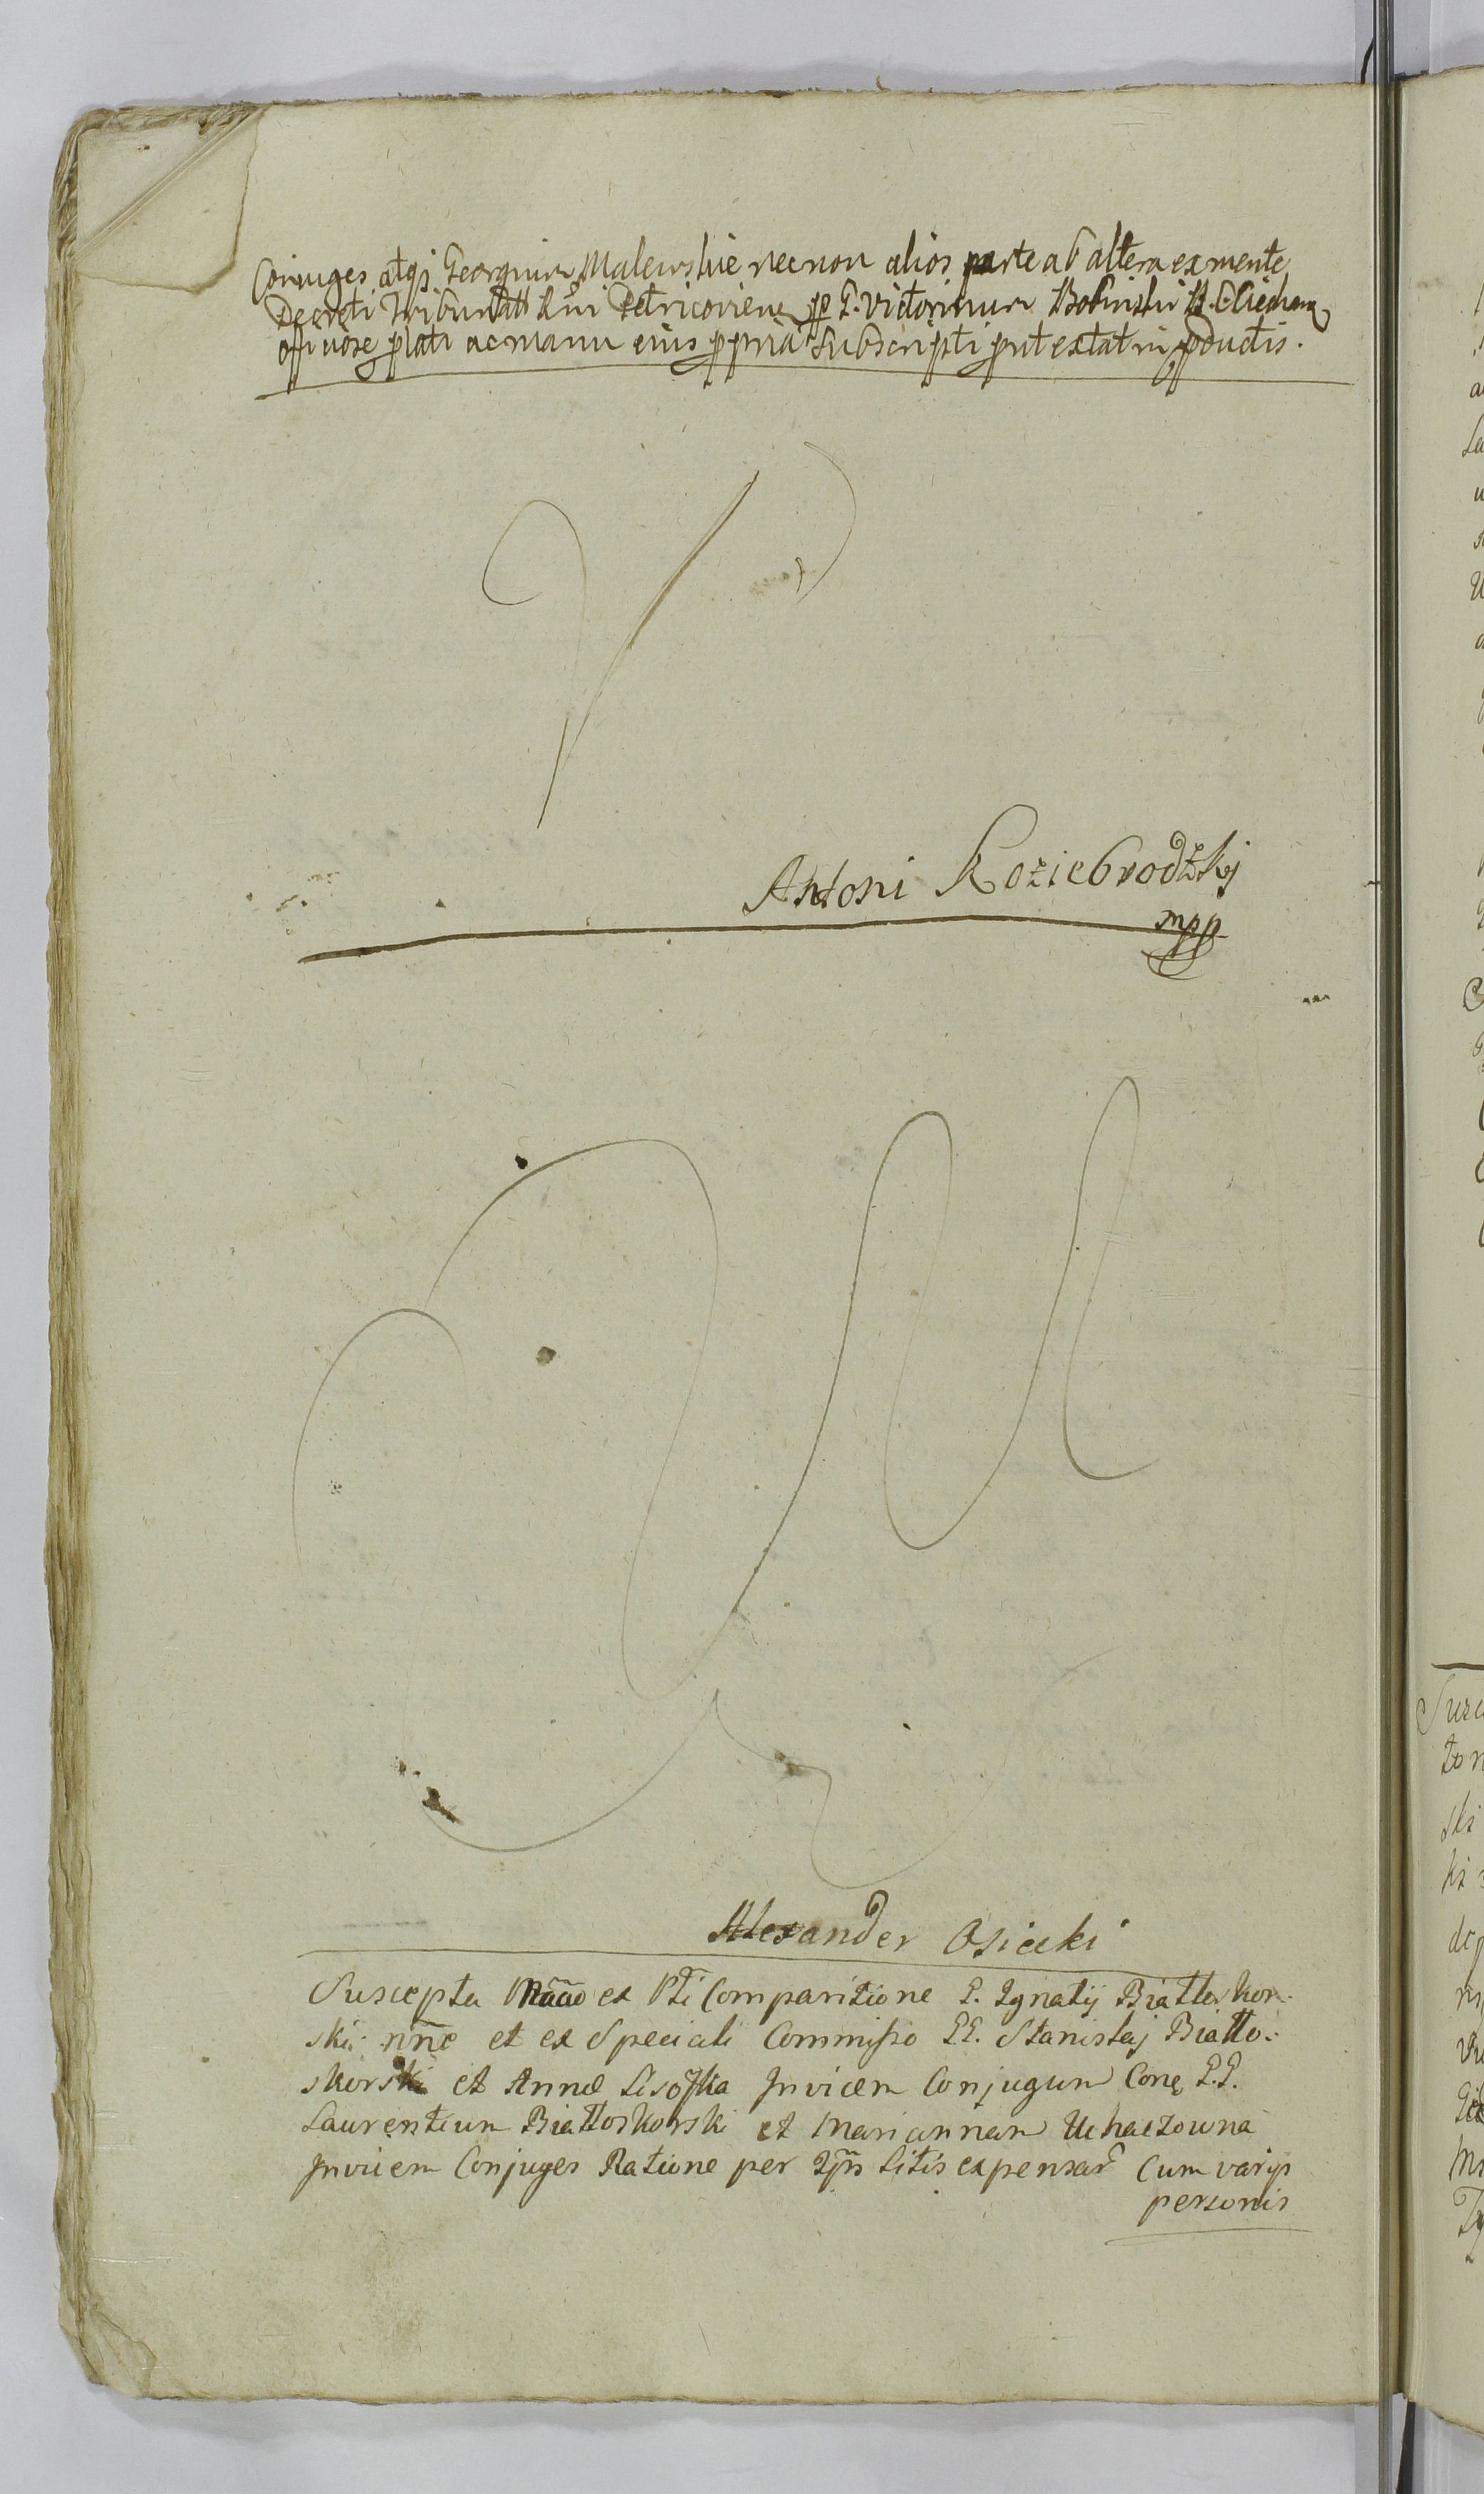 Coniuges atqȝ Georgium Malewskie necnon alios parte ab altera ex mente
Decreti Tribunatt Rñi Petricovien ꝑ G. Victorinum Bobinski B. C. Ciechan
offiose ꝑlati ac manu eius ꝓpria Subscripti prut extat in ꝓductis.
Antoni Koziebrodzkj
mpp
Alexander Osiecki
Suscepta ex Pti Comparitione G. Ignatij Białłoskor-
ski nne et ex Speciali Commisso GG. Stanislaj Białło-
skorski et Annæ Invicem Conjugum Cone G.G.
Laurentium Białłoskorski et Mariannam Uchaczowna
Invicem Conjuges Ratione per Litis expensar Cum varijs
personis